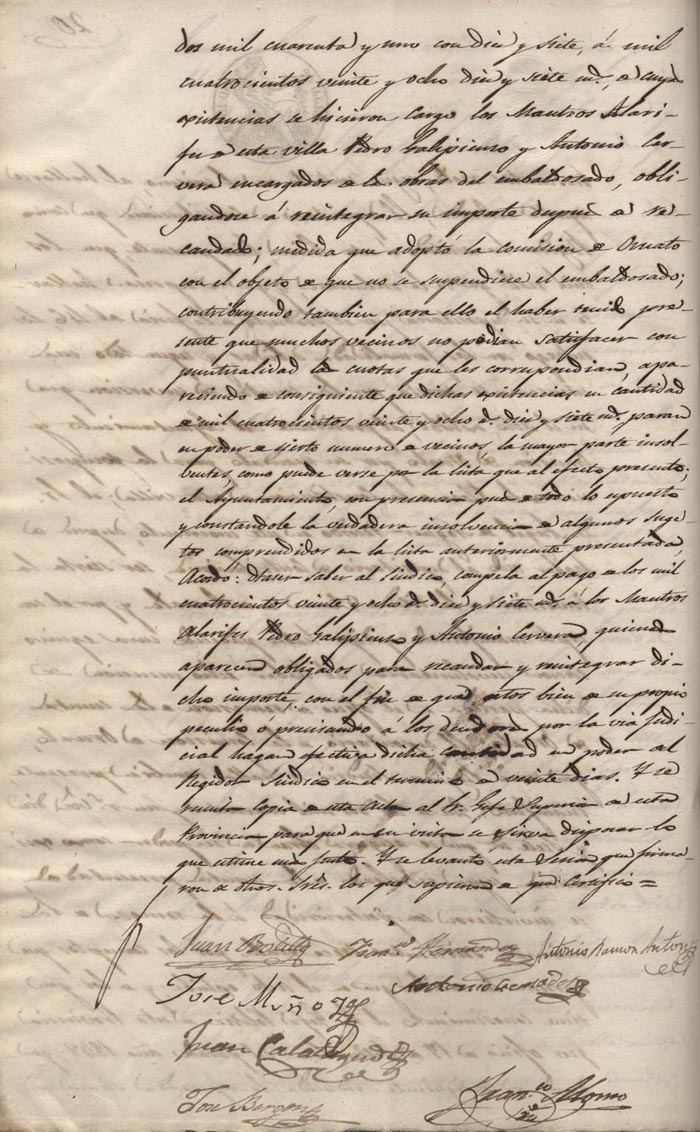 dos mil cuarenta y uno con diez y siete, á mil
cuatrocientos veinte y ocho diez y siete ms, de cuyas
existencias se hicieron cargo los Maestros Alari-
fes de esta villa Pedro Galipienzo y Antonio Cer-
vera encargados de las obras del embaldosado, obli-
gandose á reintegrar su importe despues de re-
caudado; medida que adoptó la comision de Ornato
con el objeto de que no se suspendiese el embaldosado;
contribuyendo tambien para ello el haber tenido pre-
sente que muchos vecinos no podian satisfacer con
puntualidad las cuotas que les correspondian, apa-
reciendo de consiguiente que dichas existencias en cantidad
de mil cuatrocientos veinte y ocho rs. diez y siete ms. paran
en poder de cierto numero de vecinos, la mayor parte insol-
ventes, como puede verse por la lista que al efecto presento;
el Ayuntamiento, con presencia pues de todo lo espuesto
y constandole la verdadera insolvencia de algunos suge-
tos comprendidos en la lista anteriormente presentada,
Acordó: Haser saber al Sindico, compela al pago de los mil
cuatrocientos veinte y ocho rs. diez y siete ms. á los Maestros
Alarifes Pedro Galipienzo y Antonio Cervera, quienes
aparecen obligados para recaudar y reintegrar di-
cho importe, con el fin de que estos bien de su propio
peculio ó precisando á los deudores por la via Judi-
cial hagan efectiva dicha cantidad en poder del
Regidor Sindico en el termino de veinte dias. Y se
remita copia de esta Acta al Sr. Gefe Superior de esta
Provincia para que en su vista se sirva disponer lo
que estime mas justo. Y se levantó esta Sesion que firma-
ron de dhos. Sres. los que supieron de que Certifico =
Juan Franco Hernandez Antonio Ramon Antonio
Jose Muñoz Antonio
Juan
Jose Franco Alonso